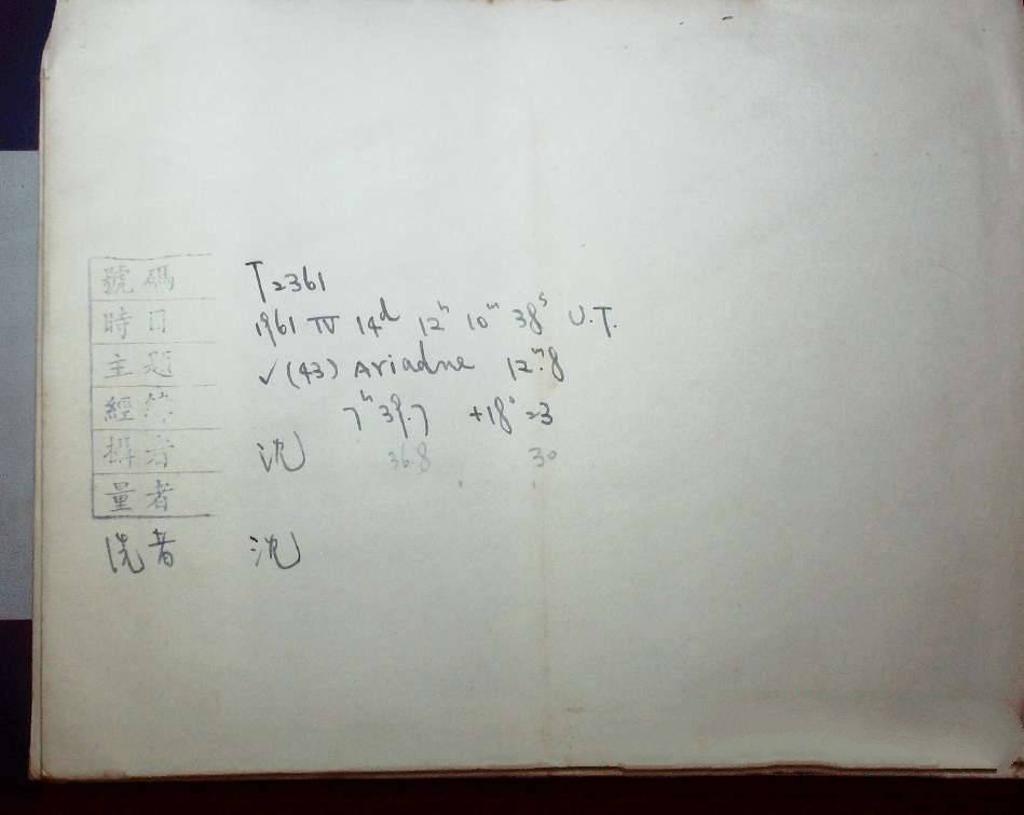 號碼 T2361
時日 1961 IV 14d 12h 10m 38s U.T.
主題 ✓ (43) Ariadne 12m.8
經緯 7h 39.7 +18° 23
攝者 沈 36.8 30
量者
洗者 沈